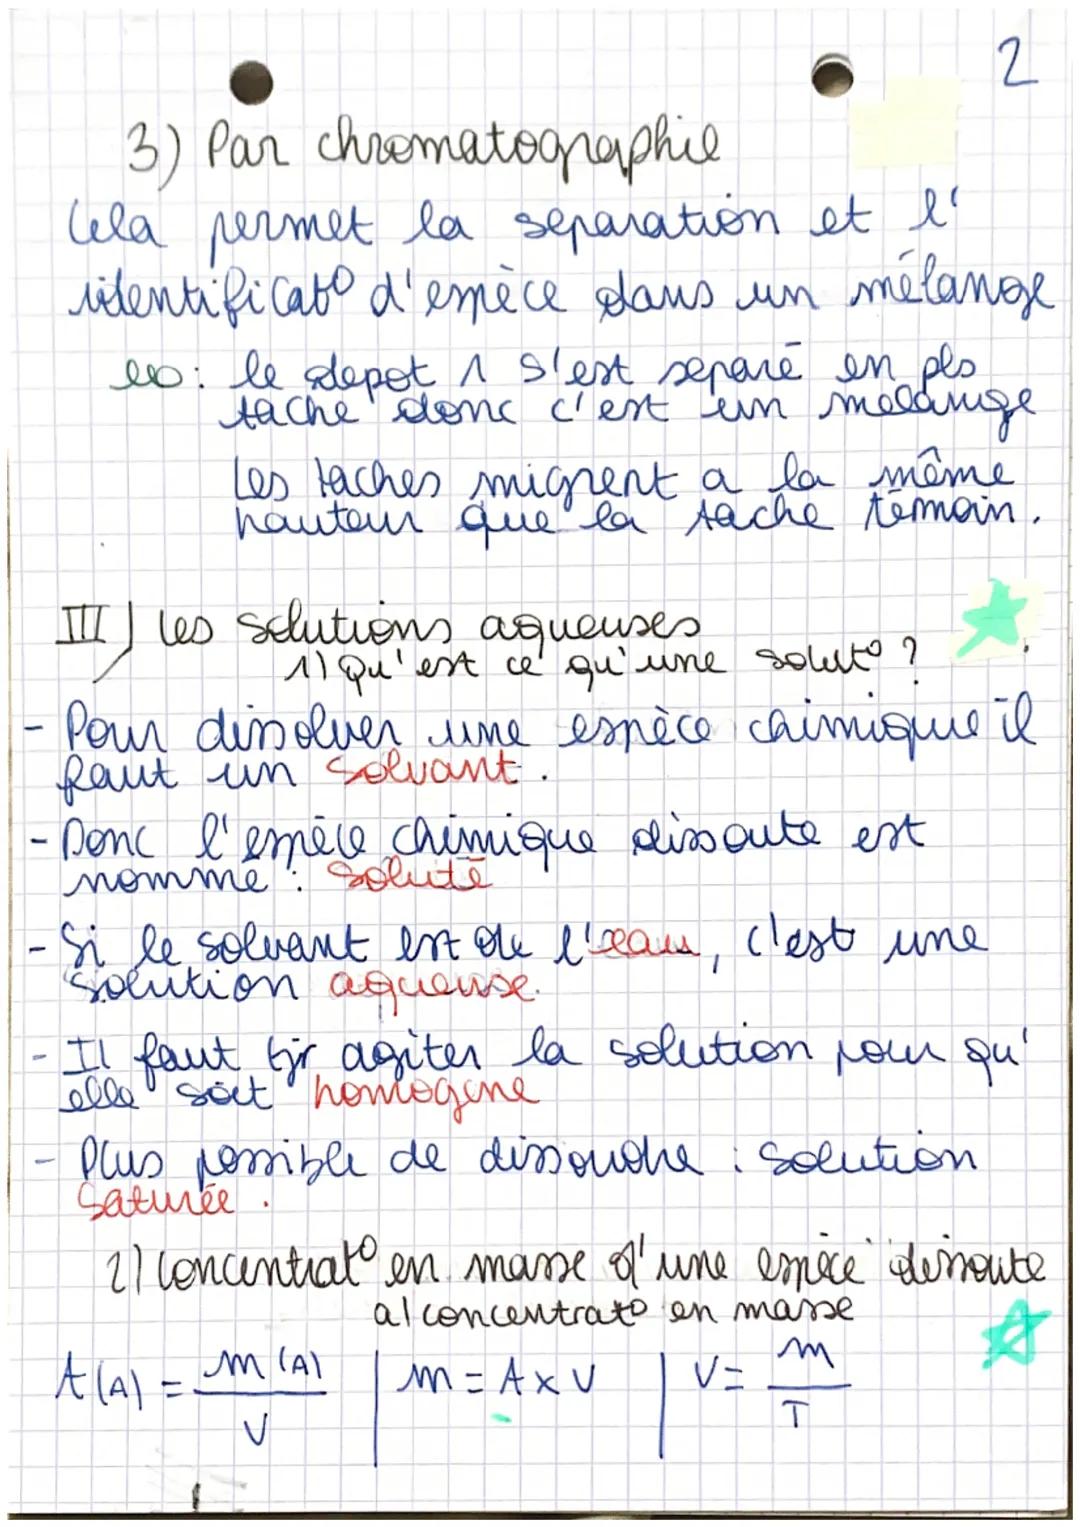 2
3) Par chromatographie
Cela permet la séparation et l'
identificat° d'espèce dans un mélange
ex: le depot 1 s'est séparé en pls
tache donc c'est un mélange
Les taches migrent a la même
hauteur que la tache témoin.
III) les solutions aqueuses
1) Qu'est ce qu'une solut° ?
- Pour dissolver une espèce chimique il
faut un solvant.
- Donc l'espèce chimique dissoute est
nommé : soluté
- Si le solvant est de l'eau, c'est une
solution aqueuse.
- Il faut tjr agiter la solution pour qu'
elle soit homogène
- Plus possible de dissoudre : solution
saturée.
2) Concentrat° en masse d'une espèce dissoute
a) concentrat° en masse
t(A) = m(A) / V | m = t x V | V = m / T